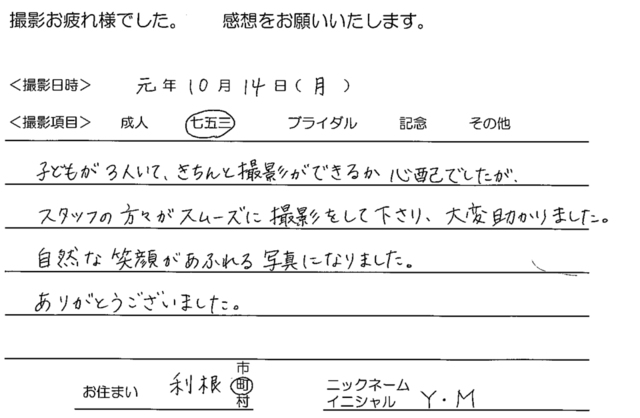 撮影お疲れ様でした。　　感想をお願いいたします。
＜撮影日時＞　元年10月14日（月）
＜撮影項目＞　成人　七五三　ブライダル　記念　その他
子どもが3人いて、きちんと撮影ができるか心配でしたが、
スタッフの方々がスムーズに撮影をして下さり、大変助かりました。
自然な笑顔があふれる写真になりました。
ありがとうございました。
お住まい　利根　市町村　ニックネーム イニシャル　Y・M